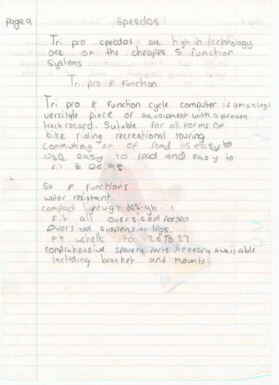 page 9
Speedos
Tri pro speedos are high in technology
are on the cheapies 5 function
systems
Tri pro 8 function
Tri pro 8 function cycle computer is amazingly
versitile piece of equipment with a proven
track record. Suitable for all forms of
bike riding recreational touring
commuting or of road its easy to
use easy to read and easy to
fit
8 functions
water resistant
compact lightweight
fit all oversized
oversized suspension legs
fit wheels 26 to 27
comprehensive spares available
including bracket and mounts